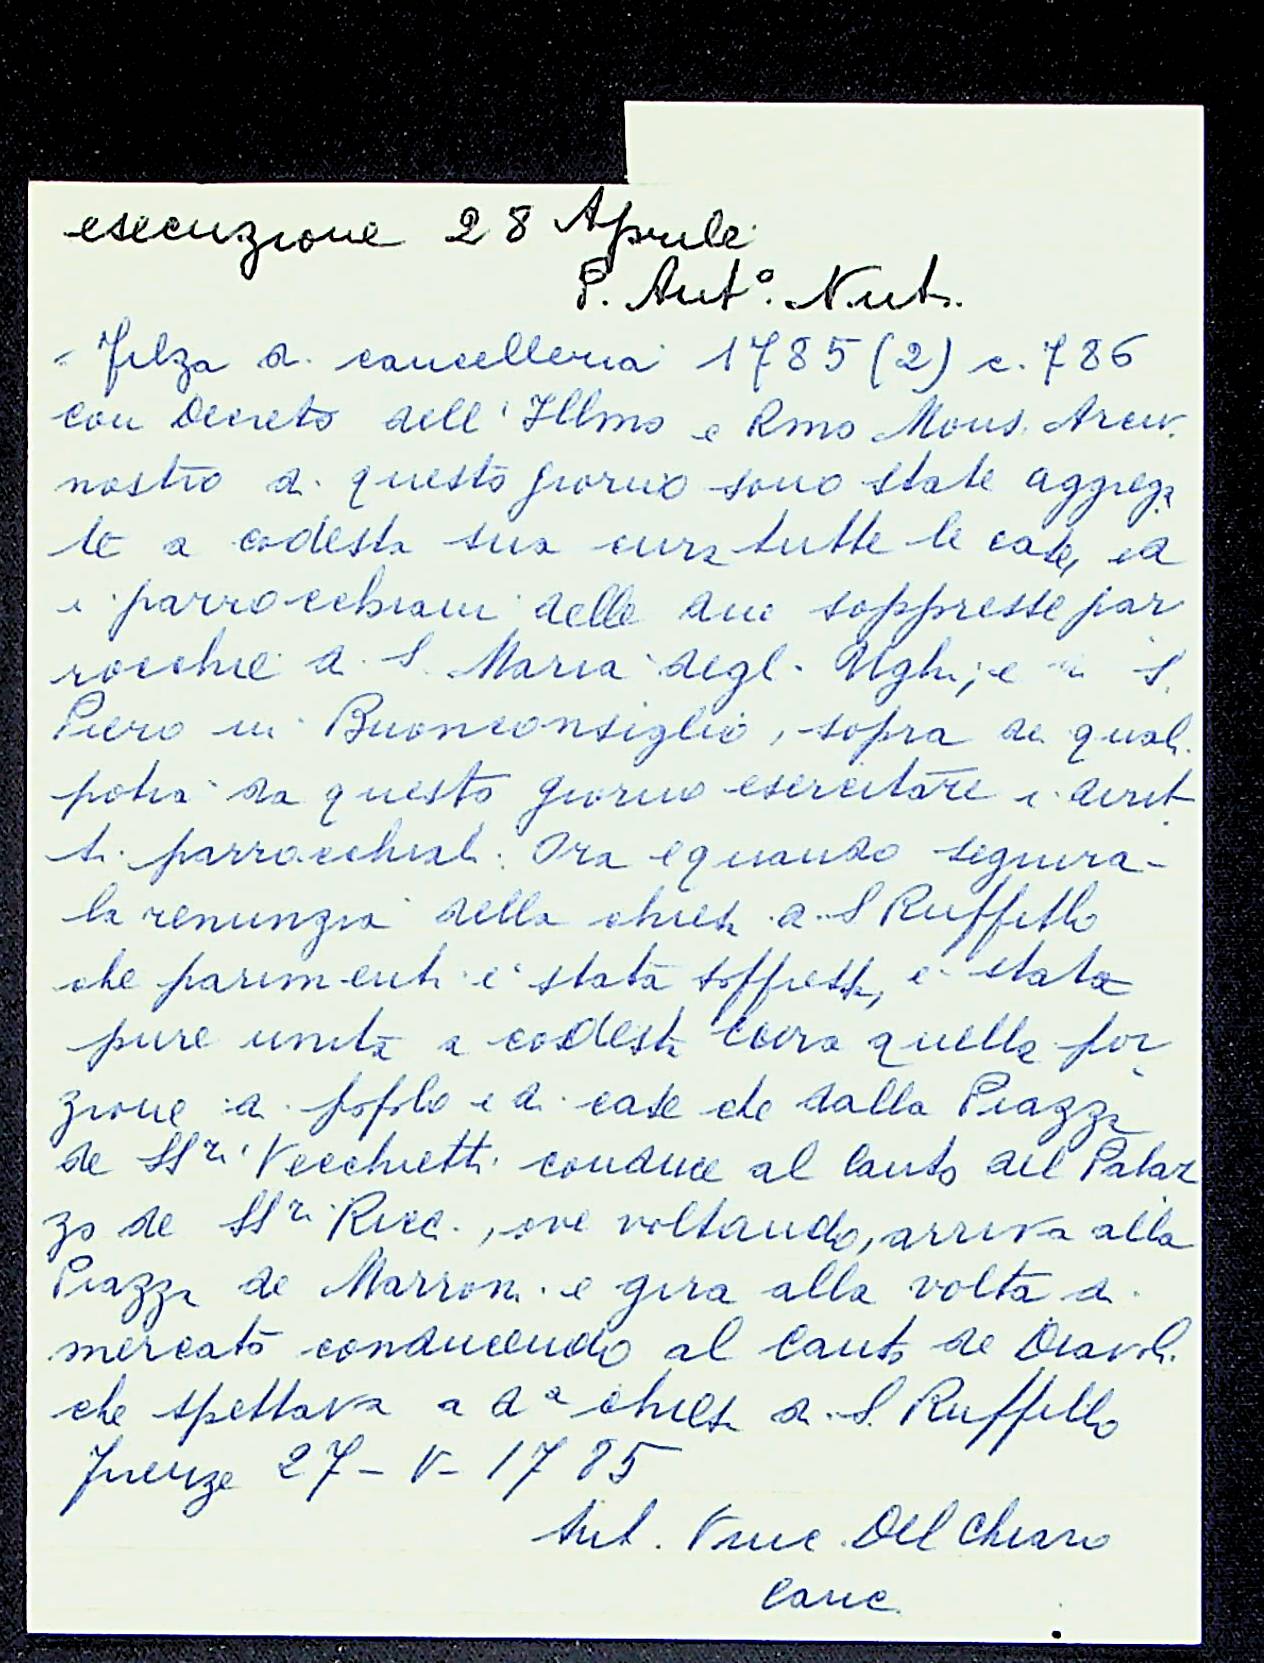 esecuzione 28 Aprile
P. Ant°. Nut.
- Filza di cancelleria 1785 (2) c. 786
con Decreto dell'Illmo e Rmo Mons. Arciv.
nostro di questo giorno sono state aggrega
te a codesta sua cura tutte le case, ed
i parrocchiani delle due soppresse par
rocchie di S. Maria degli Ughi, e di S.
Piero in Buonconsiglio, sopra dei quali
potrà da questo giorno esercitare i dirit
ti parrocchiali. Ora e quando seguirà
la renunzia della chiesa di S Ruffillo
che parimenti è stata soppressa, è stata
pure unita a codesta cura quella por
zione di popolo e di case che dalla Piazza
de SSri Vecchietti conduce al canto del Palaz
zo de SSri Ricci, ove voltando, arriva alla
Piazza de Marroni e gira alla volta di
mercato conducendo al Canto de Diavoli
che spettava a da chiesa di S. Ruffillo
Firenze 27 - V - 1785
Ant. Vinc. Del Chiaro
Canc.